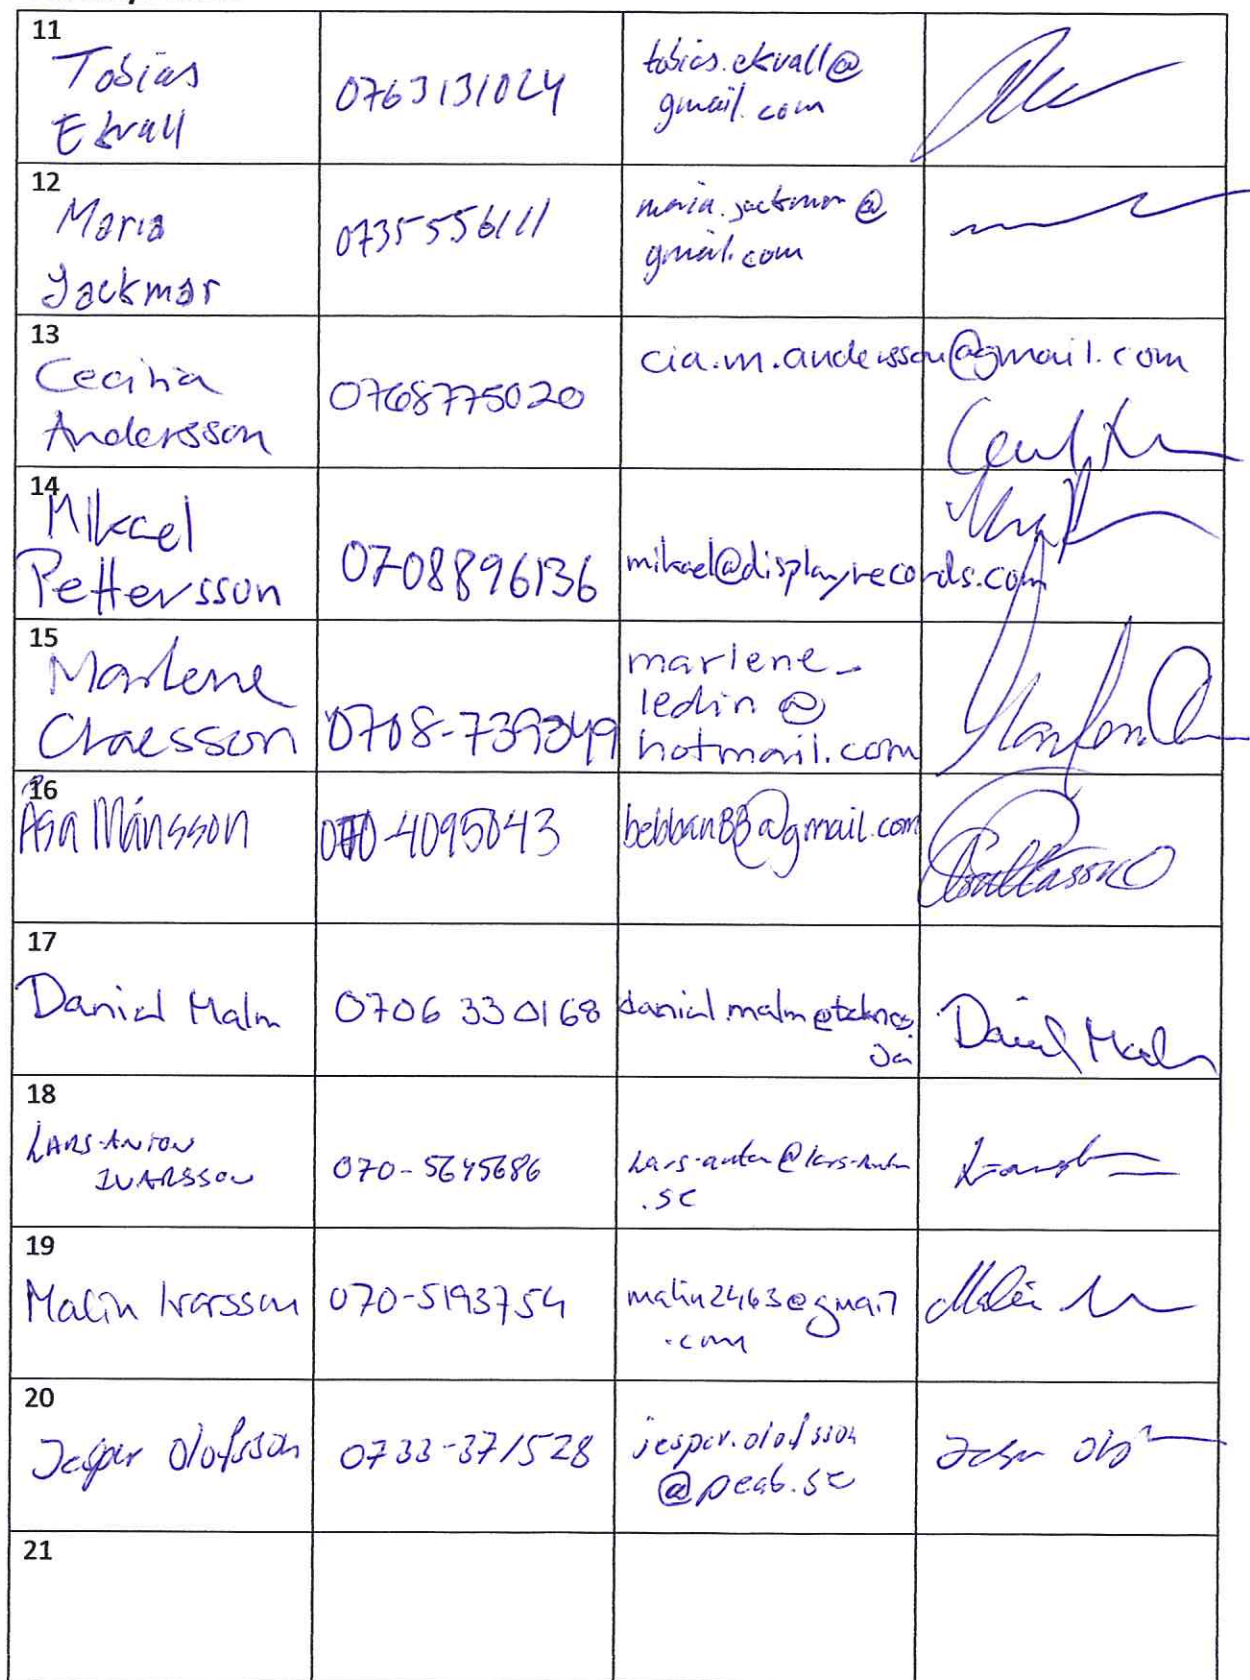 11
Tobias
Ekvall
0763131024
tobias.ekvall@
gmail.com
12
Maria
Jackmar
0735556111
maria.jackmar@
gmail.com
13
Cecilia
Andersson
0768775020
cia.m.andersson@gmail.com
14
Mikael
Pettersson
0708896136
mikael@displayrecords.com
15
Marlene
Claesson
0708-739349
marlene_
ledin@
hotmail.com
16
Åsa Månsson
070-4095043
bebban88@gmail.com
17
Daniel Malm
0706 330168
Daniel Malm
18
LARS-ANTON
IVARSSON
070-5645686
Lars-anton@lars-anton
.se
19
Malin Ivarsson
070-5193754
malin2463@gmail
.com
Malin
20
Jesper Olofsson
0733-371528
jesper.olofsson
@peab.se
21